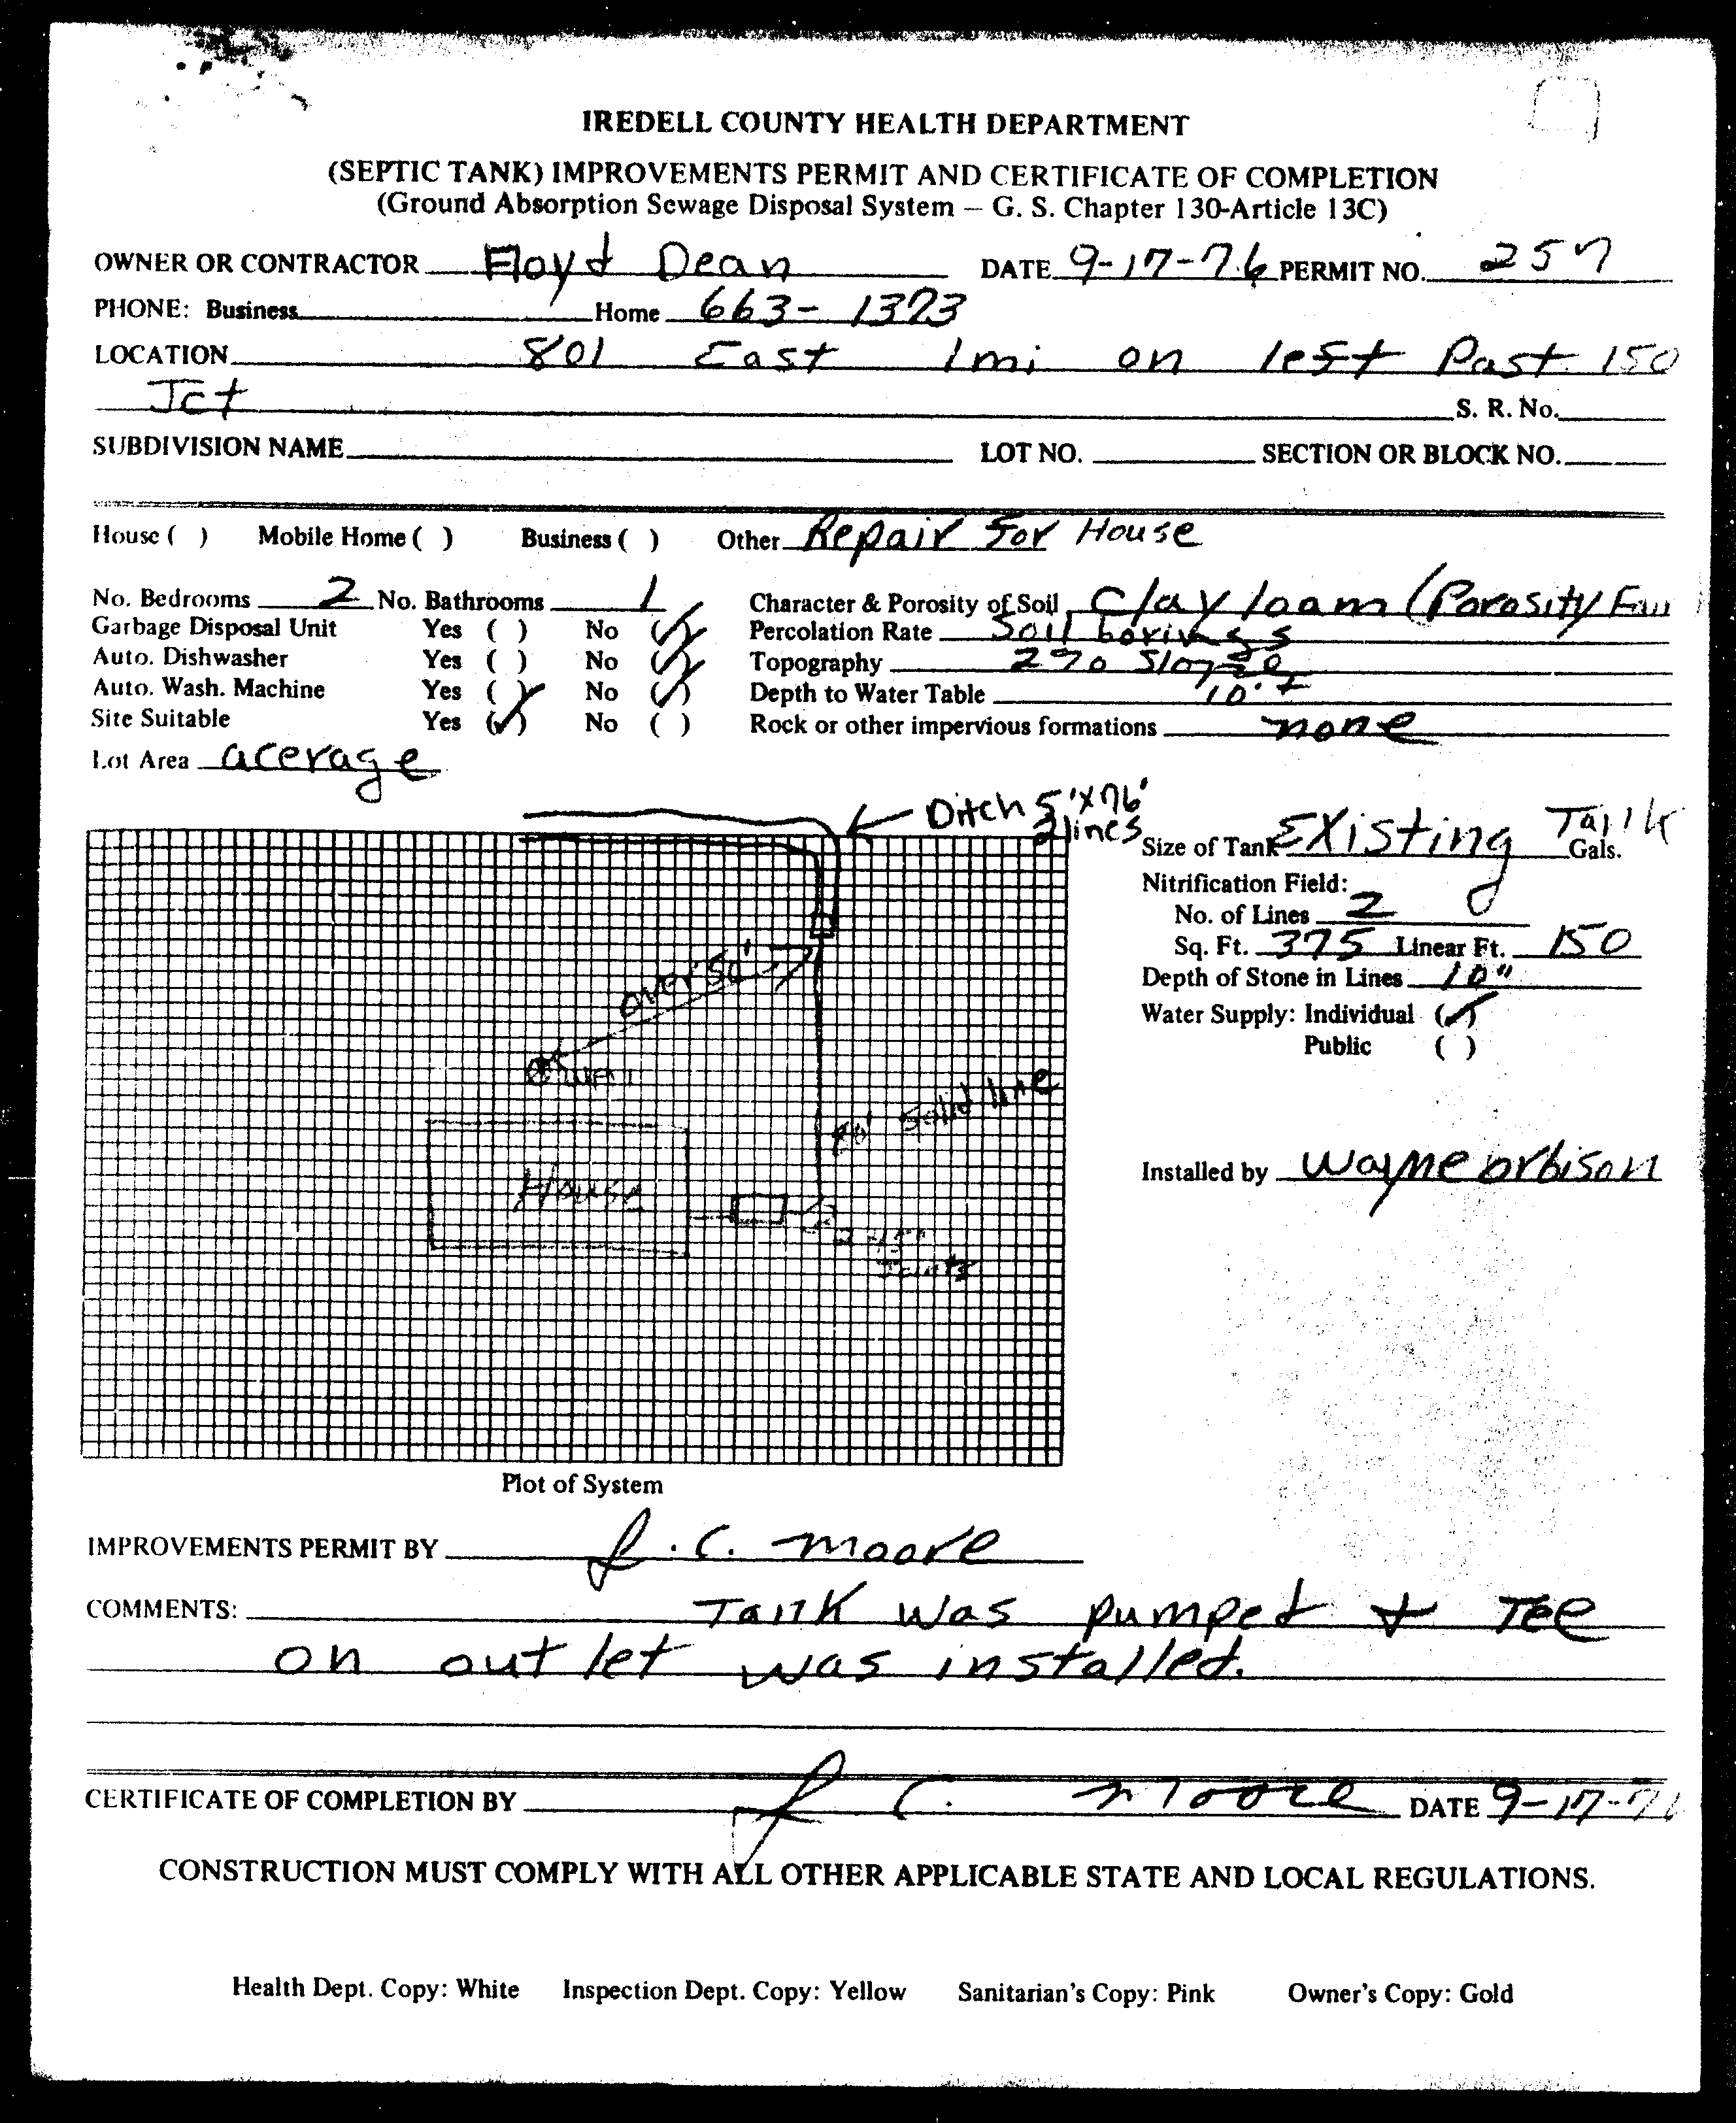 IREDELL COUNTY HEALTH DEPARTMENT
(SEPTIC TANK) IMPROVEMENTS PERMIT AND CERTIFICATE OF COMPLETION
(Ground Absorption Sewage Disposal System – G. S. Chapter 130-Article 13C)
OWNER OR CONTRACTOR Floyd Dean DATE 9-17-76 PERMIT NO. 257
PHONE: Business Home 663-1373
LOCATION 801 East 1mi on left Past 150
Jct S. R. No.
SUBDIVISION NAME LOT NO. SECTION OR BLOCK NO.
House ( ) Mobile Home ( ) Business ( ) Other Repair For House
No. Bedrooms 2 No. Bathrooms 1 Character & Porosity of Soil Clay loam (Porosity Fair
Garbage Disposal Unit Yes ( ) No (✓) Percolation Rate Soil borings
Auto. Dishwasher Yes ( ) No (✓) Topography 2% Slope
Auto. Wash. Machine Yes (✓) No (✓) Depth to Water Table 10'+
Site Suitable Yes (✓) No ( ) Rock or other impervious formations none
Lot Area acerage
Ditch 5'X76'
2 lines
Size of Tank Existing Tank Gals.
Nitrification Field:
No. of Lines 2
Sq. Ft. 375 Linear Ft. 150
Depth of Stone in Lines 10"
Water Supply: Individual (✓)
Public ( )
over 50'
Well
Solid line
House
Joints
Installed by Wayne Orbison
Plot of System
IMPROVEMENTS PERMIT BY J. C. Moore
COMMENTS: Tank was pumped & Tee
on outlet was installed.
CERTIFICATE OF COMPLETION BY J C. Moore DATE 9-17-76
CONSTRUCTION MUST COMPLY WITH ALL OTHER APPLICABLE STATE AND LOCAL REGULATIONS.
Health Dept. Copy: White Inspection Dept. Copy: Yellow Sanitarian's Copy: Pink Owner's Copy: Gold